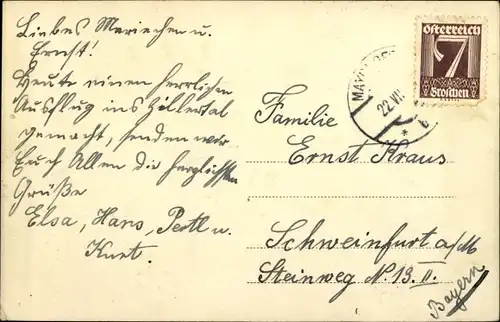 Liebes Mariechen u.
Ernst!
Heute einen herrlichen
Ausflug ins Zillertal
gemacht, senden wir
Euch Allen die herzlichsten
Grüße
Elsa, Hans, Pertl u.
Kurt.
österreich
7
Groschen
MAY
22.VII
Familie
Ernst Kraus
Schweinfurt a/M
Steinweg N. 13. II.
Bayern